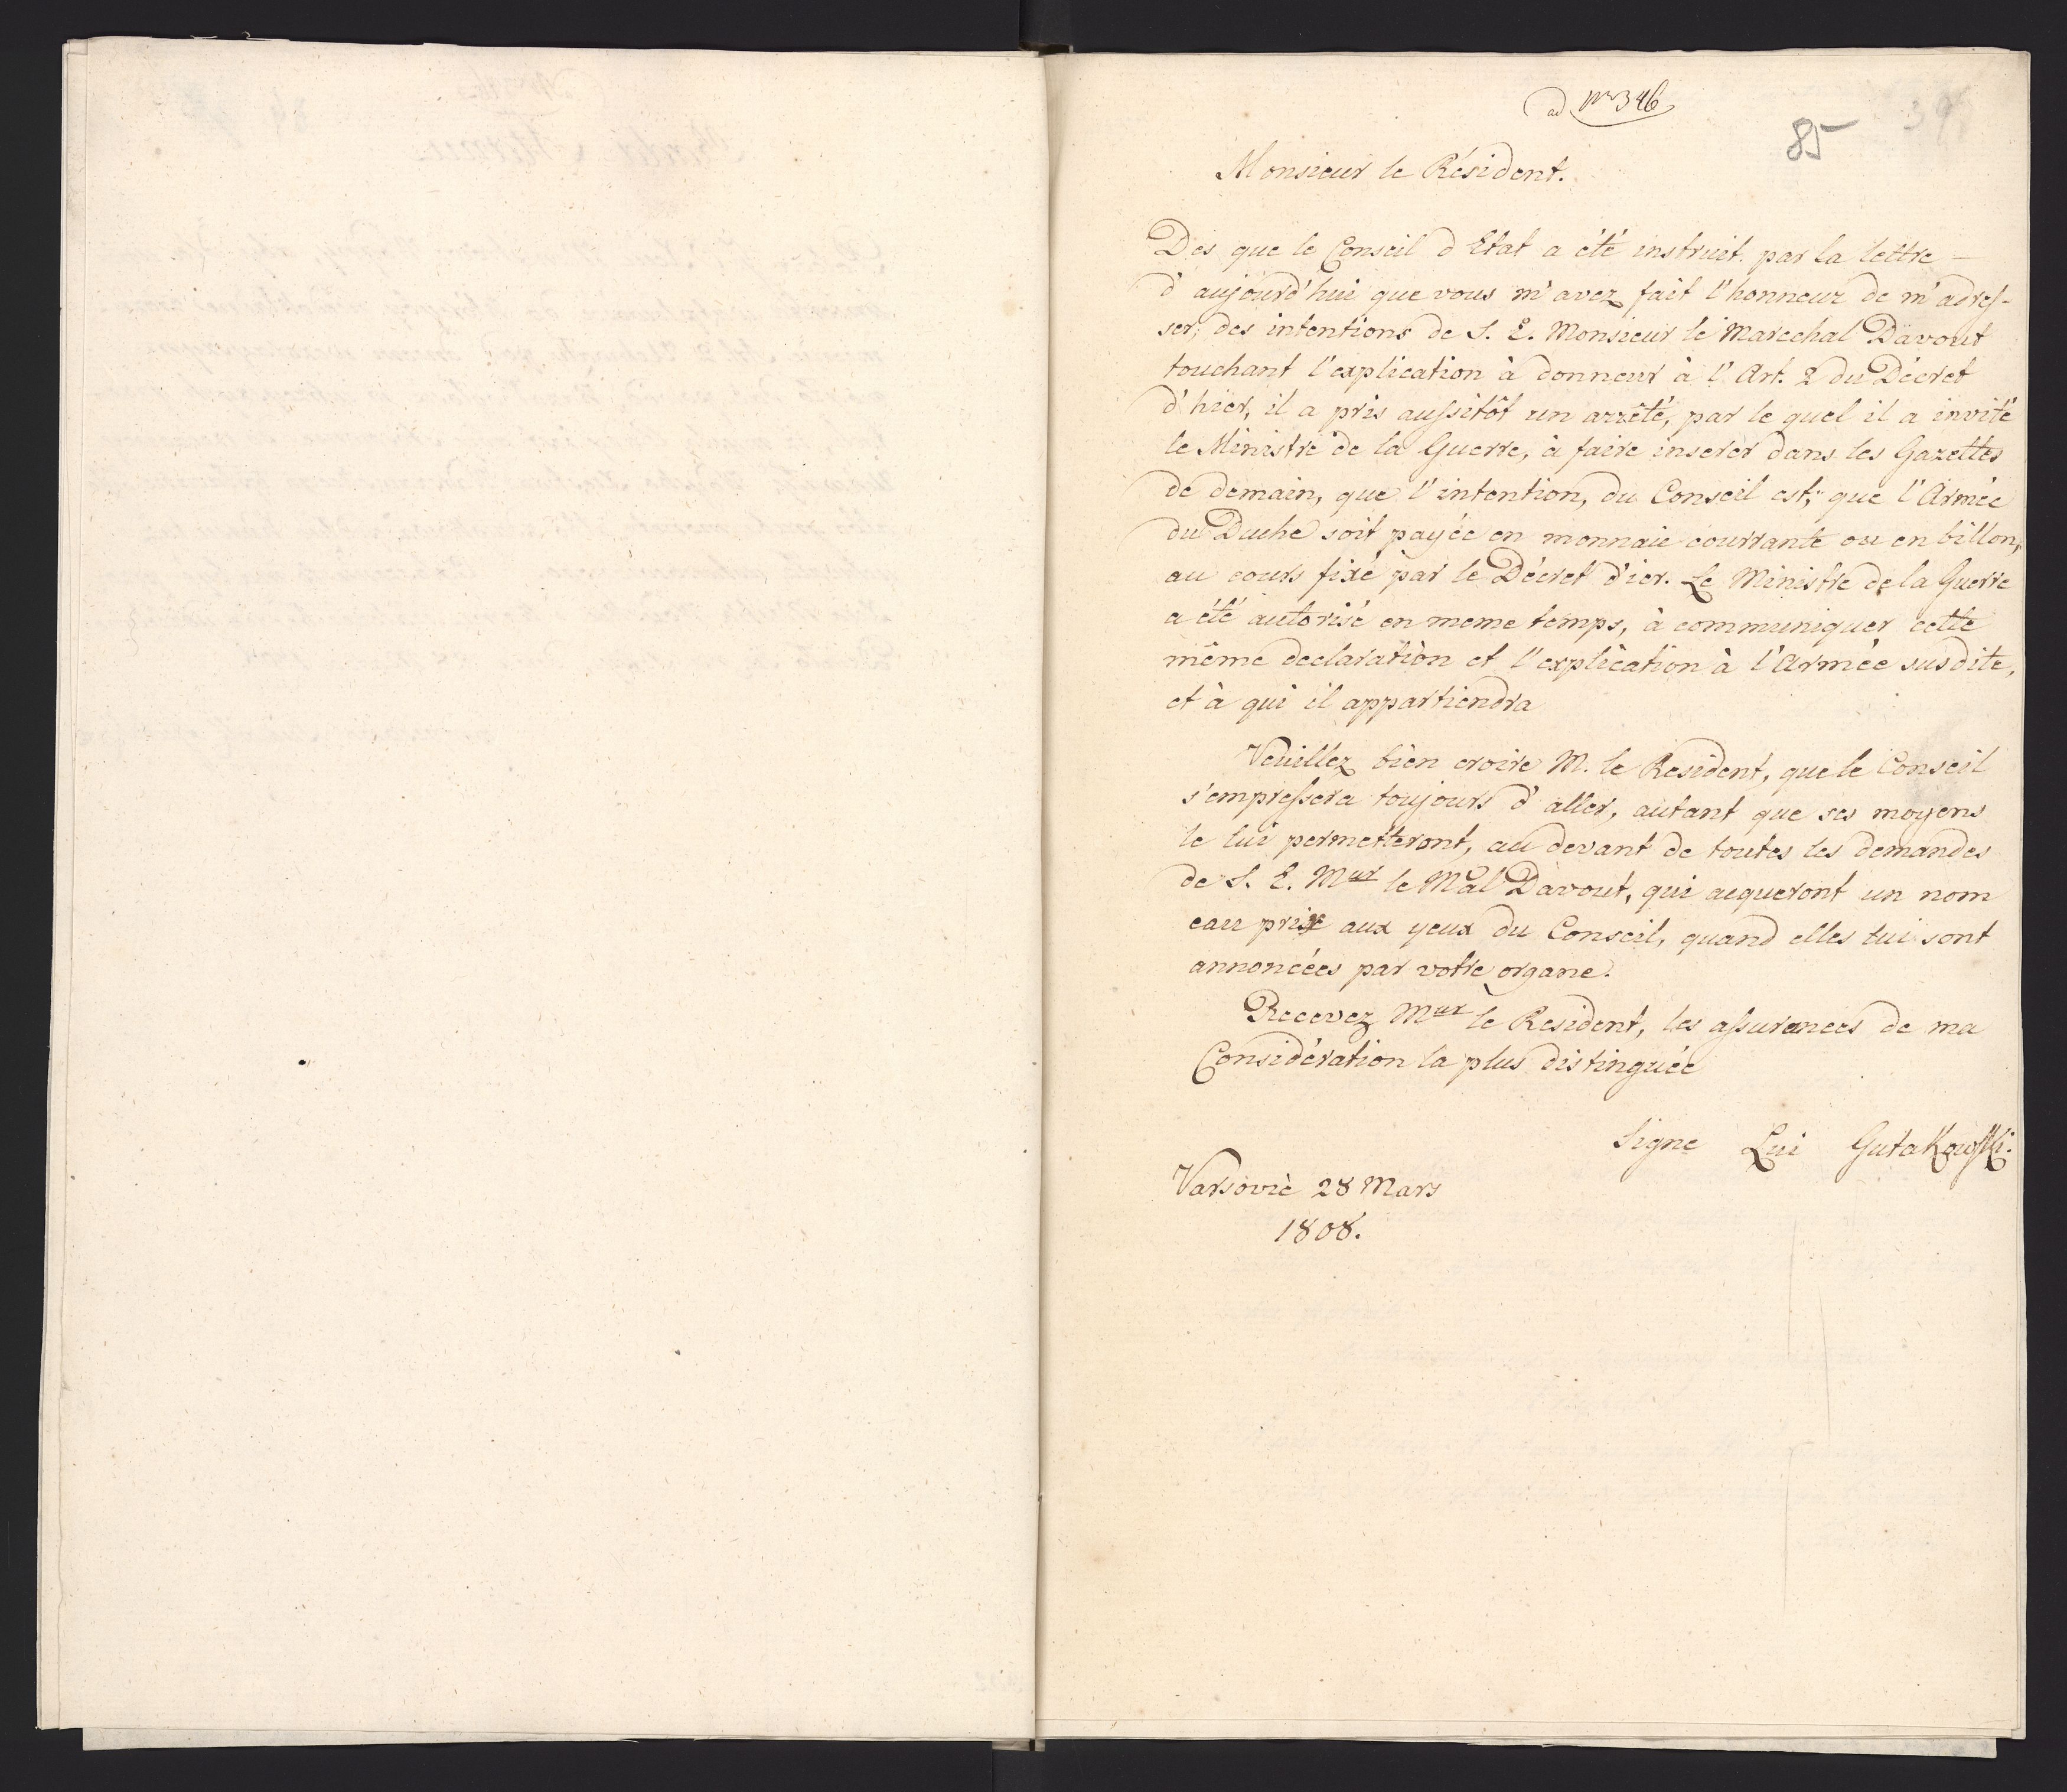 ad Nro 346
85
39
Monsieur le Résident.
Dès que le Conseil d'Etat a été instruit par la lettre
d'aujourd'hui que vous m'avez fait l'honneur de m'adres-
ser, des intentions de S. E. Monsieur le Marechal Davout
touchant l'explication à donneur à l'Art. 2 du Décret
d'hier, il a pris aussitôt un arrêté, par le quel il a invité
le Ministre de la Guerre, à faire inserèr dans les Gazettes
de demain, que l'intention, du Conseil est, que l'Armée
du Duche soit payée en monnaie courrante ou en billon,
au cours fixé par le Décret d'ier. Le Ministre de la Guerre
a été autorisé en meme temps, à communiquer cette
même declaration et l'explication à l'Armée susdite,
et à qui il appartiendra
Veuillez bien croire M. le Resident, que le Conseil
s'empressera toujours d'aller, autant que ses moyens
le lui permetteront, au devant de toutes les demandes
de S. E. Mur le Mal Davout, qui aqueront un nom
eau prix aux yeux du Conseil, quand elles lui sont
annoncées par votre organe.
Recevez Mur le Resident, les assurances de ma
Considération la plus distinguée
Signe Lui Gutakowski.
Varsovie 28 Mars
1808.